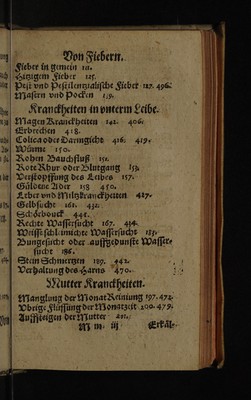 Von Fiebern.
Fieber in gemein 121.
Hitzigem Fieber 125.
Pest vnd Pestilentzialische Fieber 127. 496.
Masern vnd Pocken 139.
Kranckheiten in vnterm Leibe.
Magen Kranckheiten 142. 406.
Erbrechen 418.
Colica oder Darmgicht 416. 419.
Würme 150.
Rohen Bauchfluß 151.
Rote Rhur oder Blutgang 153.
Verstopffung des Leibes 157.
Güldene Ader 158 450.
Leber vnd Miltzkranckheiten 427.
Gelbsucht 161. 432.
Schörbouck 442.
Rechte Wassersucht 167. 434.
Weisschleimichte Wassersucht 183.
Bungesucht oder auffgedunste Wasser-
sucht 186.
Stein Schmertzen 189. 442.
Verhaltung des Harns 470.
Mutter Kranckheiten.
Manglung der Monat Reinung 197. 472.
Vbrige Flüssung der Monatzeit 200. 479.
Auffsteigen der Mutter 201.
M m iij Erkäl-